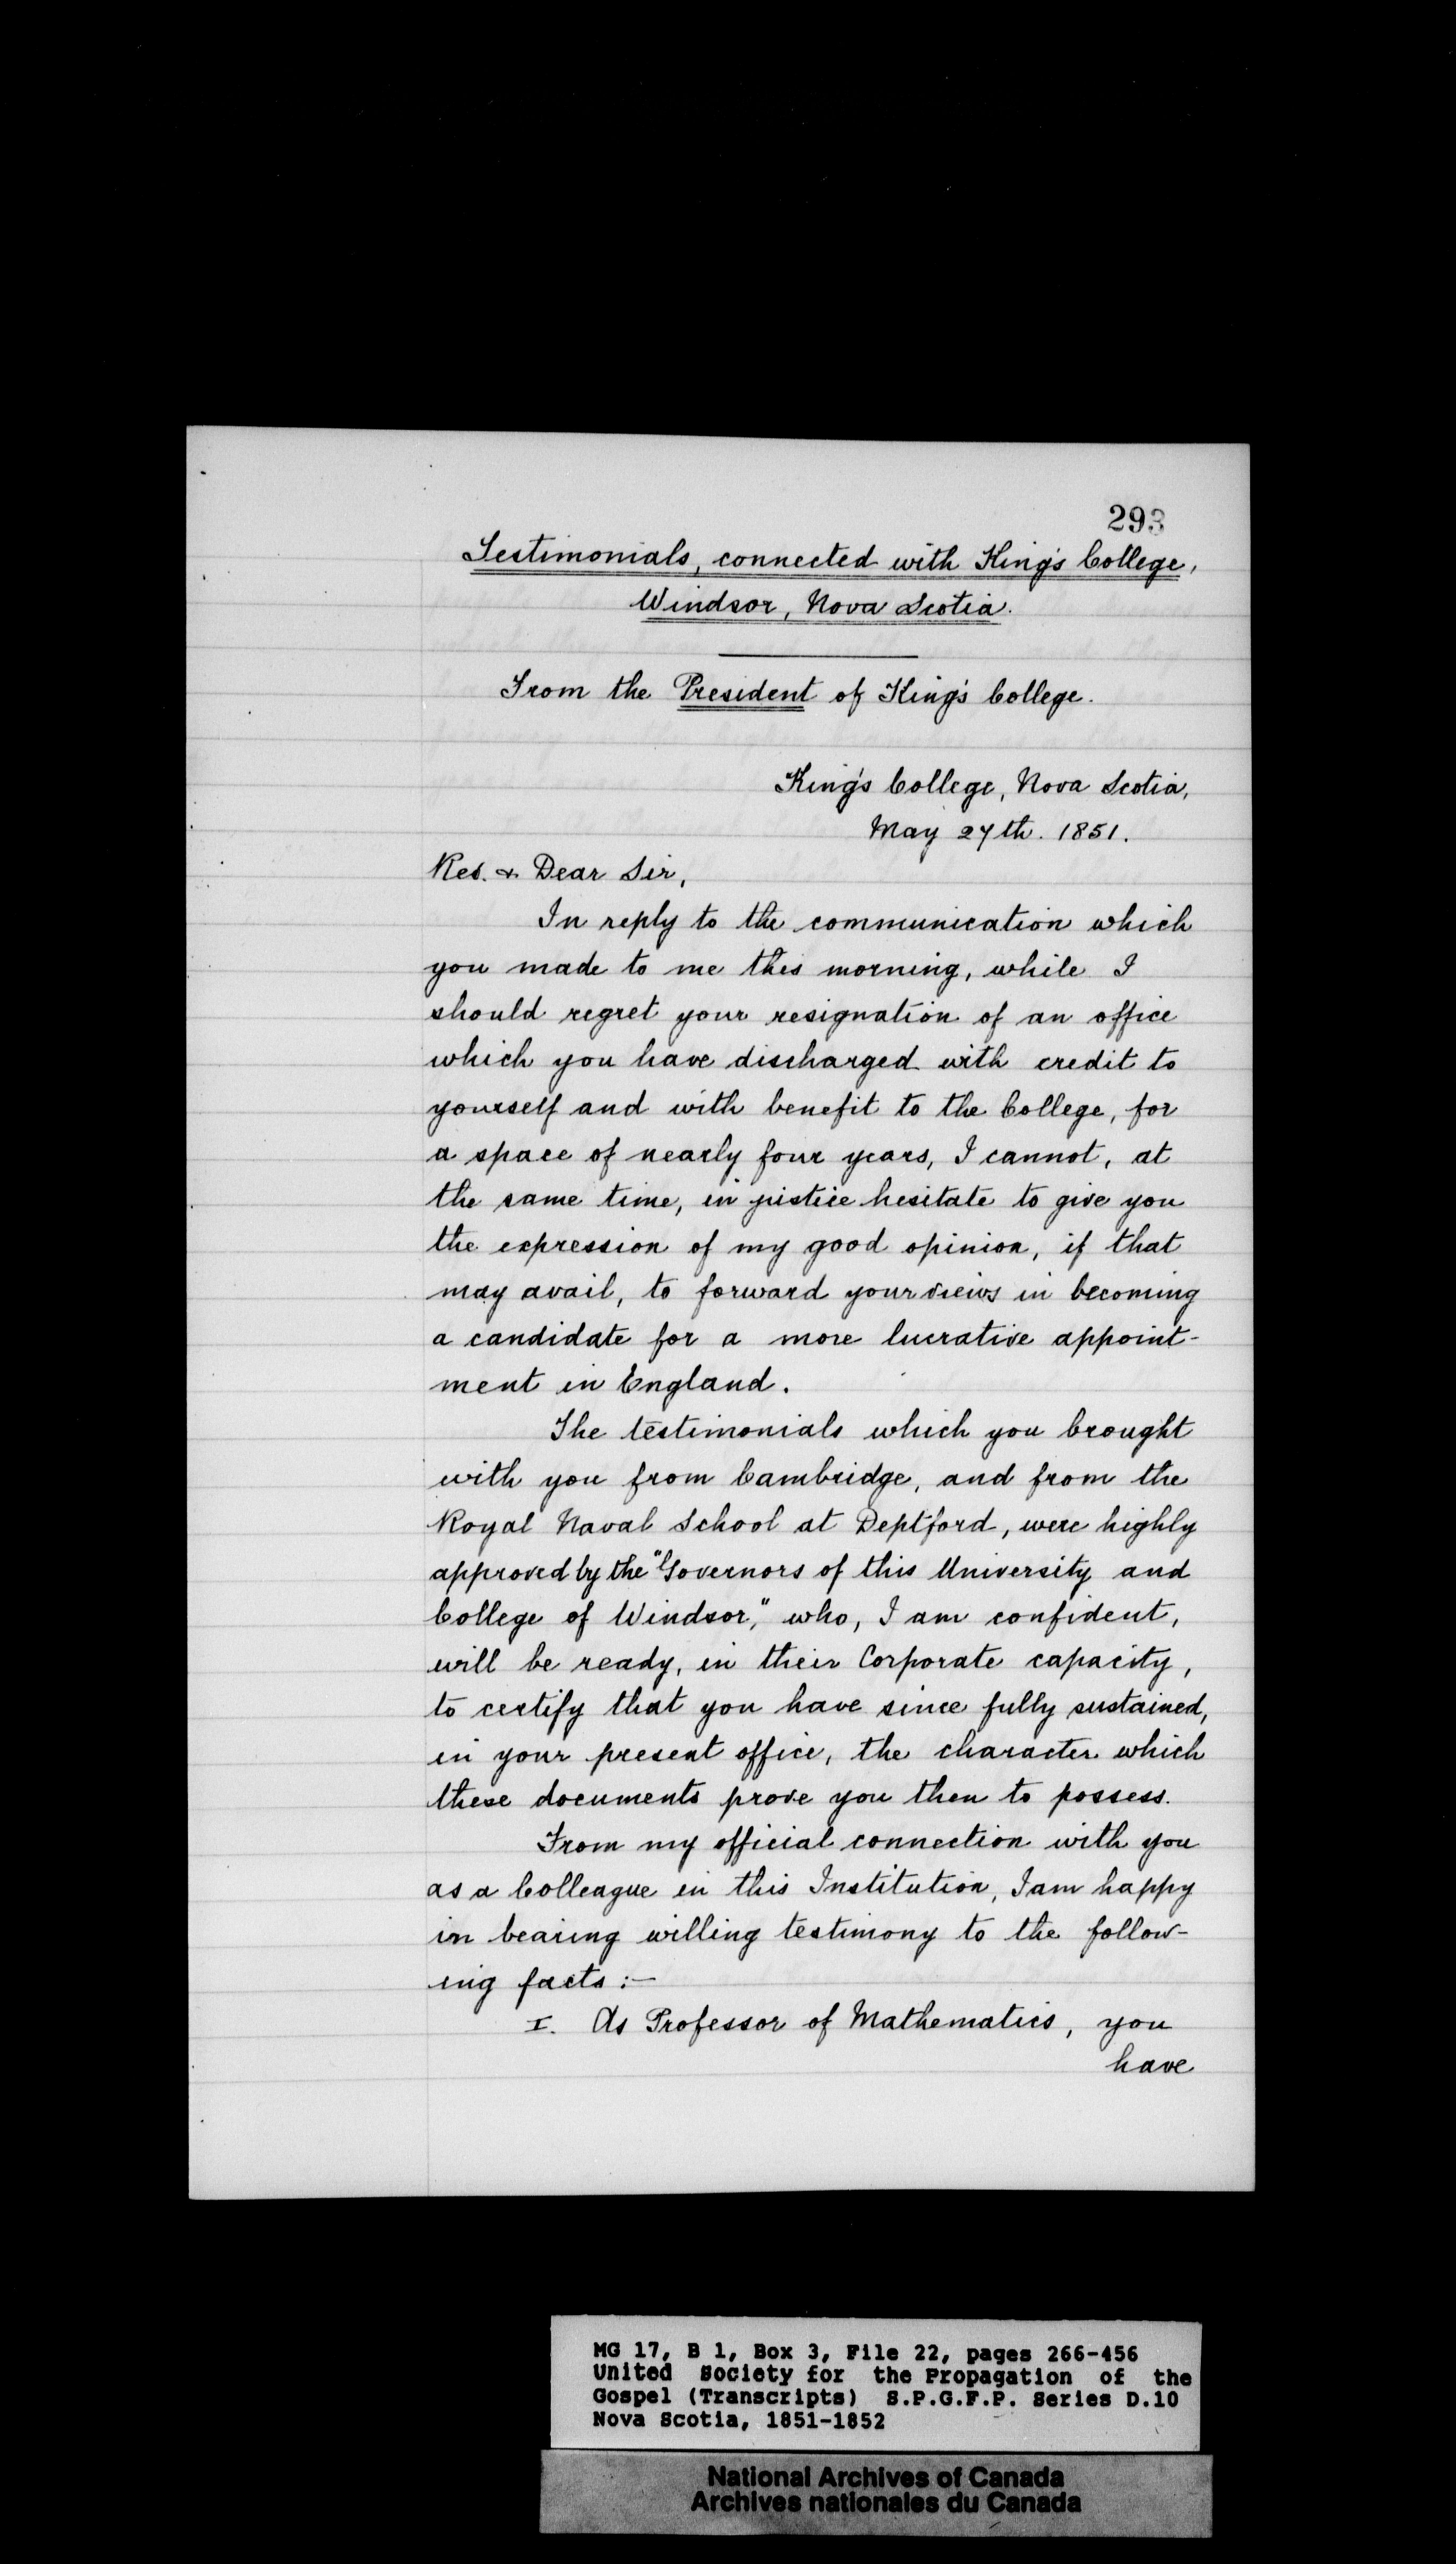 293
Testimonials, connected with King's College,
Windsor, Nova Scotia.
From the President of King's College.
King's College, Nova Scotia,
May 27th. 1851.
Rev. & Dear Sir,
In reply to the communication which
you made to me this morning, while I
should regret your resignation of an office
which you have discharged with credit to
yourself and with benefit to the College, for
a space of nearly four years, I cannot, at
the same time, in justice hesitate to give you
the expression of my good opinion, if that
may avail, to forward your views in becoming
a candidate for a more lucrative appoint-
ment in England.
The testimonials which you brought
with you from Cambridge, and from the
Royal Naval School at Deptford, were highly
approved by the "Governors of this University and
College of Windsor," who, I am confident,
will be ready, in their Corporate capacity,
to certify that you have since fully sustained,
in your present office, the character which
these documents prove you then to possess.
From my official connection with you
as a Colleague in this Institution, I am happy
in bearing willing testimony to the follow-
ing facts :—
I. As Professor of Mathematics, you
have
MG 17, B 1, Box 3, File 22, pages 266-456
United Society for the Propagation of the
Gospel (Transcripts) S.P.G.F.P. Series D.10
Nova Scotia, 1851-1852
National Archives of Canada
Archives nationales du Canada